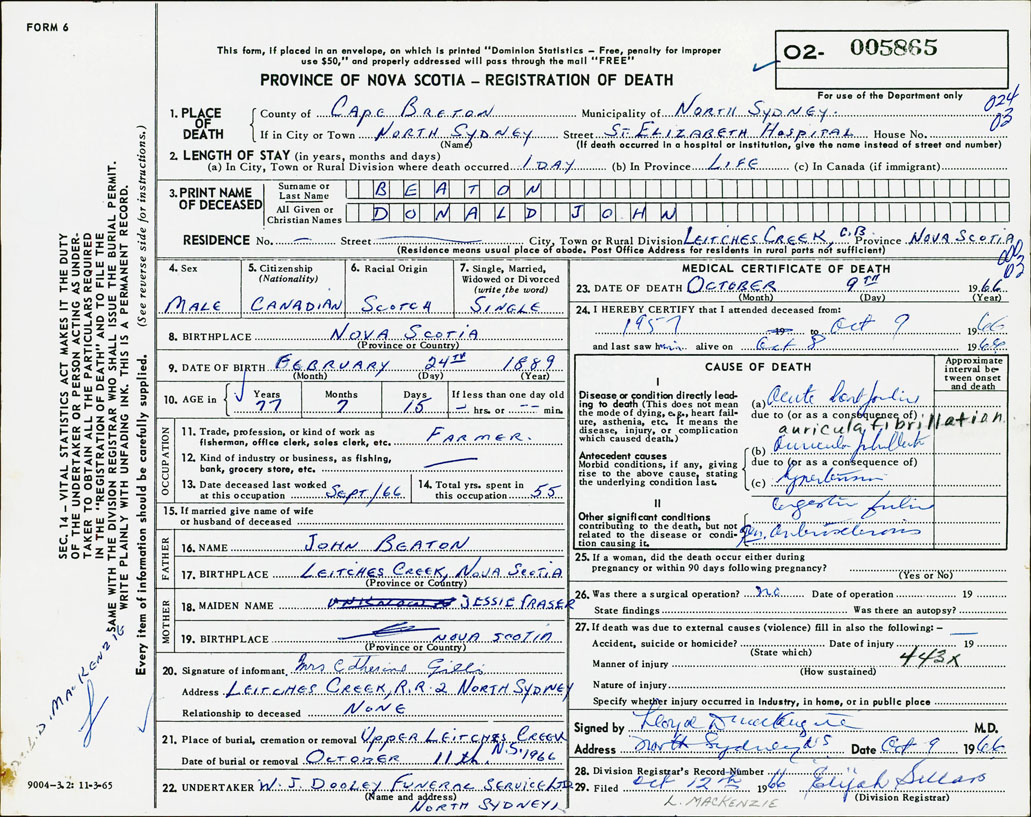 FORM 6
This form, if placed in an envelope, on which is printed "Dominion Statistics – Free, penalty for improper
use $50," and properly addressed will pass through the mail "FREE"
PROVINCE OF NOVA SCOTIA – REGISTRATION OF DEATH
02- 005865
For use of the Department only
024
03
1. PLACE OF DEATH
County of CAPE BRETON Municipality of NORTH SYDNEY.
If in City or Town NORTH SYDNEY Street ST. ELIZABETH HOSPITAL House No.
(Name) (If death occurred in a hospital or institution, give the name instead of street and number)
2. LENGTH OF STAY (in years, months and days)
(a) In City, Town or Rural Division where death occurred 1 DAY (b) In Province LIFE (c) In Canada (if immigrant)
3. PRINT NAME OF DECEASED
Surname or Last Name BEATON
All Given or Christian Names DONALD JOHN
RESIDENCE No. — Street — City, Town or Rural Division LEITCHES CREEK, C.B. Province NOVA SCOTIA
(Residence means usual place of abode. Post Office Address for residents in rural parts not sufficient)
000
02
4. Sex
MALE
5. Citizenship
(Nationality)
CANADIAN
6. Racial Origin
SCOTCH
7. Single, Married,
Widowed or Divorced
(write the word)
SINGLE
8. BIRTHPLACE NOVA SCOTIA
(Province or Country)
9. DATE OF BIRTH FEBRUARY 24TH 1889
(Month) (Day) (Year)
10. AGE in
Years Months Days If less than one day old
77 7 15 — hrs. or -- min.
OCCUPATION
11. Trade, profession, or kind of work as
fisherman, office clerk, sales clerk, etc. FARMER.
12. Kind of industry or business, as fishing,
bank, grocery store, etc. —
13. Date deceased last worked
at this occupation SEPT./66
14. Total yrs. spent in
this occupation 55
15. If married give name of wife
or husband of deceased
FATHER
16. NAME JOHN BEATON
17. BIRTHPLACE LEITCHES CREEK, NOVA SCOTIA
(Province or Country)
MOTHER
18. MAIDEN NAME UNKNOWN JESSIE FRASER
19. BIRTHPLACE NOVA SCOTIA
(Province or Country)
20. Signature of informant Mrs Catherine Gillis
Address LEITCHES CREEK, R.R.2 NORTH SYDNEY
Relationship to deceased NONE
21. Place of burial, cremation or removal UPPER LEITCHES CREEK
N.S.
Date of burial or removal OCTOBER 11th, 1966
22. UNDERTAKER W. J. DOOLEY FUNERAL SERVICE LTD
(Name and address) NORTH SYDNEY
MEDICAL CERTIFICATE OF DEATH
23. DATE OF DEATH OCTOBER 9TH 1966
(Month) (Day) (Year)
24. I HEREBY CERTIFY that I attended deceased from:
1957 19 to Oct 9 1966
and last saw him alive on Oct 8 1966
CAUSE OF DEATH
Approximate interval between onset and death
I
Disease or condition directly leading to death (This does not mean
the mode of dying, e.g., heart failure, asthenia, etc. It means the
disease, injury, or complication
which caused death.)
(a) Acute heart failure
due to (or as a consequence of)
auricular fibrillation
(b) Auricular fibrillation
due to (or as a consequence of)
Antecedent causes
Morbid conditions, if any, giving
rise to the above cause, stating
the underlying condition last.
(c) Hypertension
II
Other significant conditions
contributing to the death, but not
related to the disease or condition causing it.
Congestive failure
Gen. Arteriosclerosis
25. If a woman, did the death occur either during
pregnancy or within 90 days following pregnancy?
(Yes or No)
26. Was there a surgical operation? no Date of operation 19
State findings Was there an autopsy?
27. If death was due to external causes (violence) fill in also the following: –
Accident, suicide or homicide? Date of injury 19
(State which)
443X
Manner of injury
(How sustained)
Nature of injury
Specify whether injury occurred in industry, in home, or in public place
Signed by Lloyd D MacKenzie M.D.
Address North Sydney NS Date Oct 9 1966
28. Division Registrar's Record Number
29. Filed Oct 12th 1966 Elijah Sellars
(Division Registrar)
L. MACKENZIE
SEC. 14 – VITAL STATISTICS ACT MAKES IT THE DUTY
OF THE UNDERTAKER OR PERSON ACTING AS UNDERTAKER TO OBTAIN ALL THE PARTICULARS REQUIRED
IN THE "REGISTRATION OF DEATH" AND TO FILE THE
SAME WITH THE DIVISION REGISTRAR WHO SHALL ISSUE THE BURIAL PERMIT.
WRITE PLAINLY WITH UNFADING INK. THIS IS A PERMANENT RECORD.
Every item of information should be carefully supplied. (See reverse side for instructions.)
L.D. MACKENZIE
9004-3.2: 11-3-65